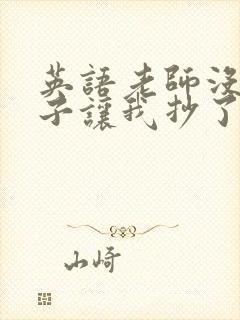 英語老師沒
子讓我抄了
山崎